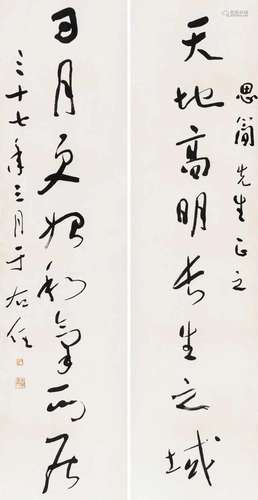 思簡先生正之
天地高明長生之域
日月更始和氣所居
三十七年三月于右任